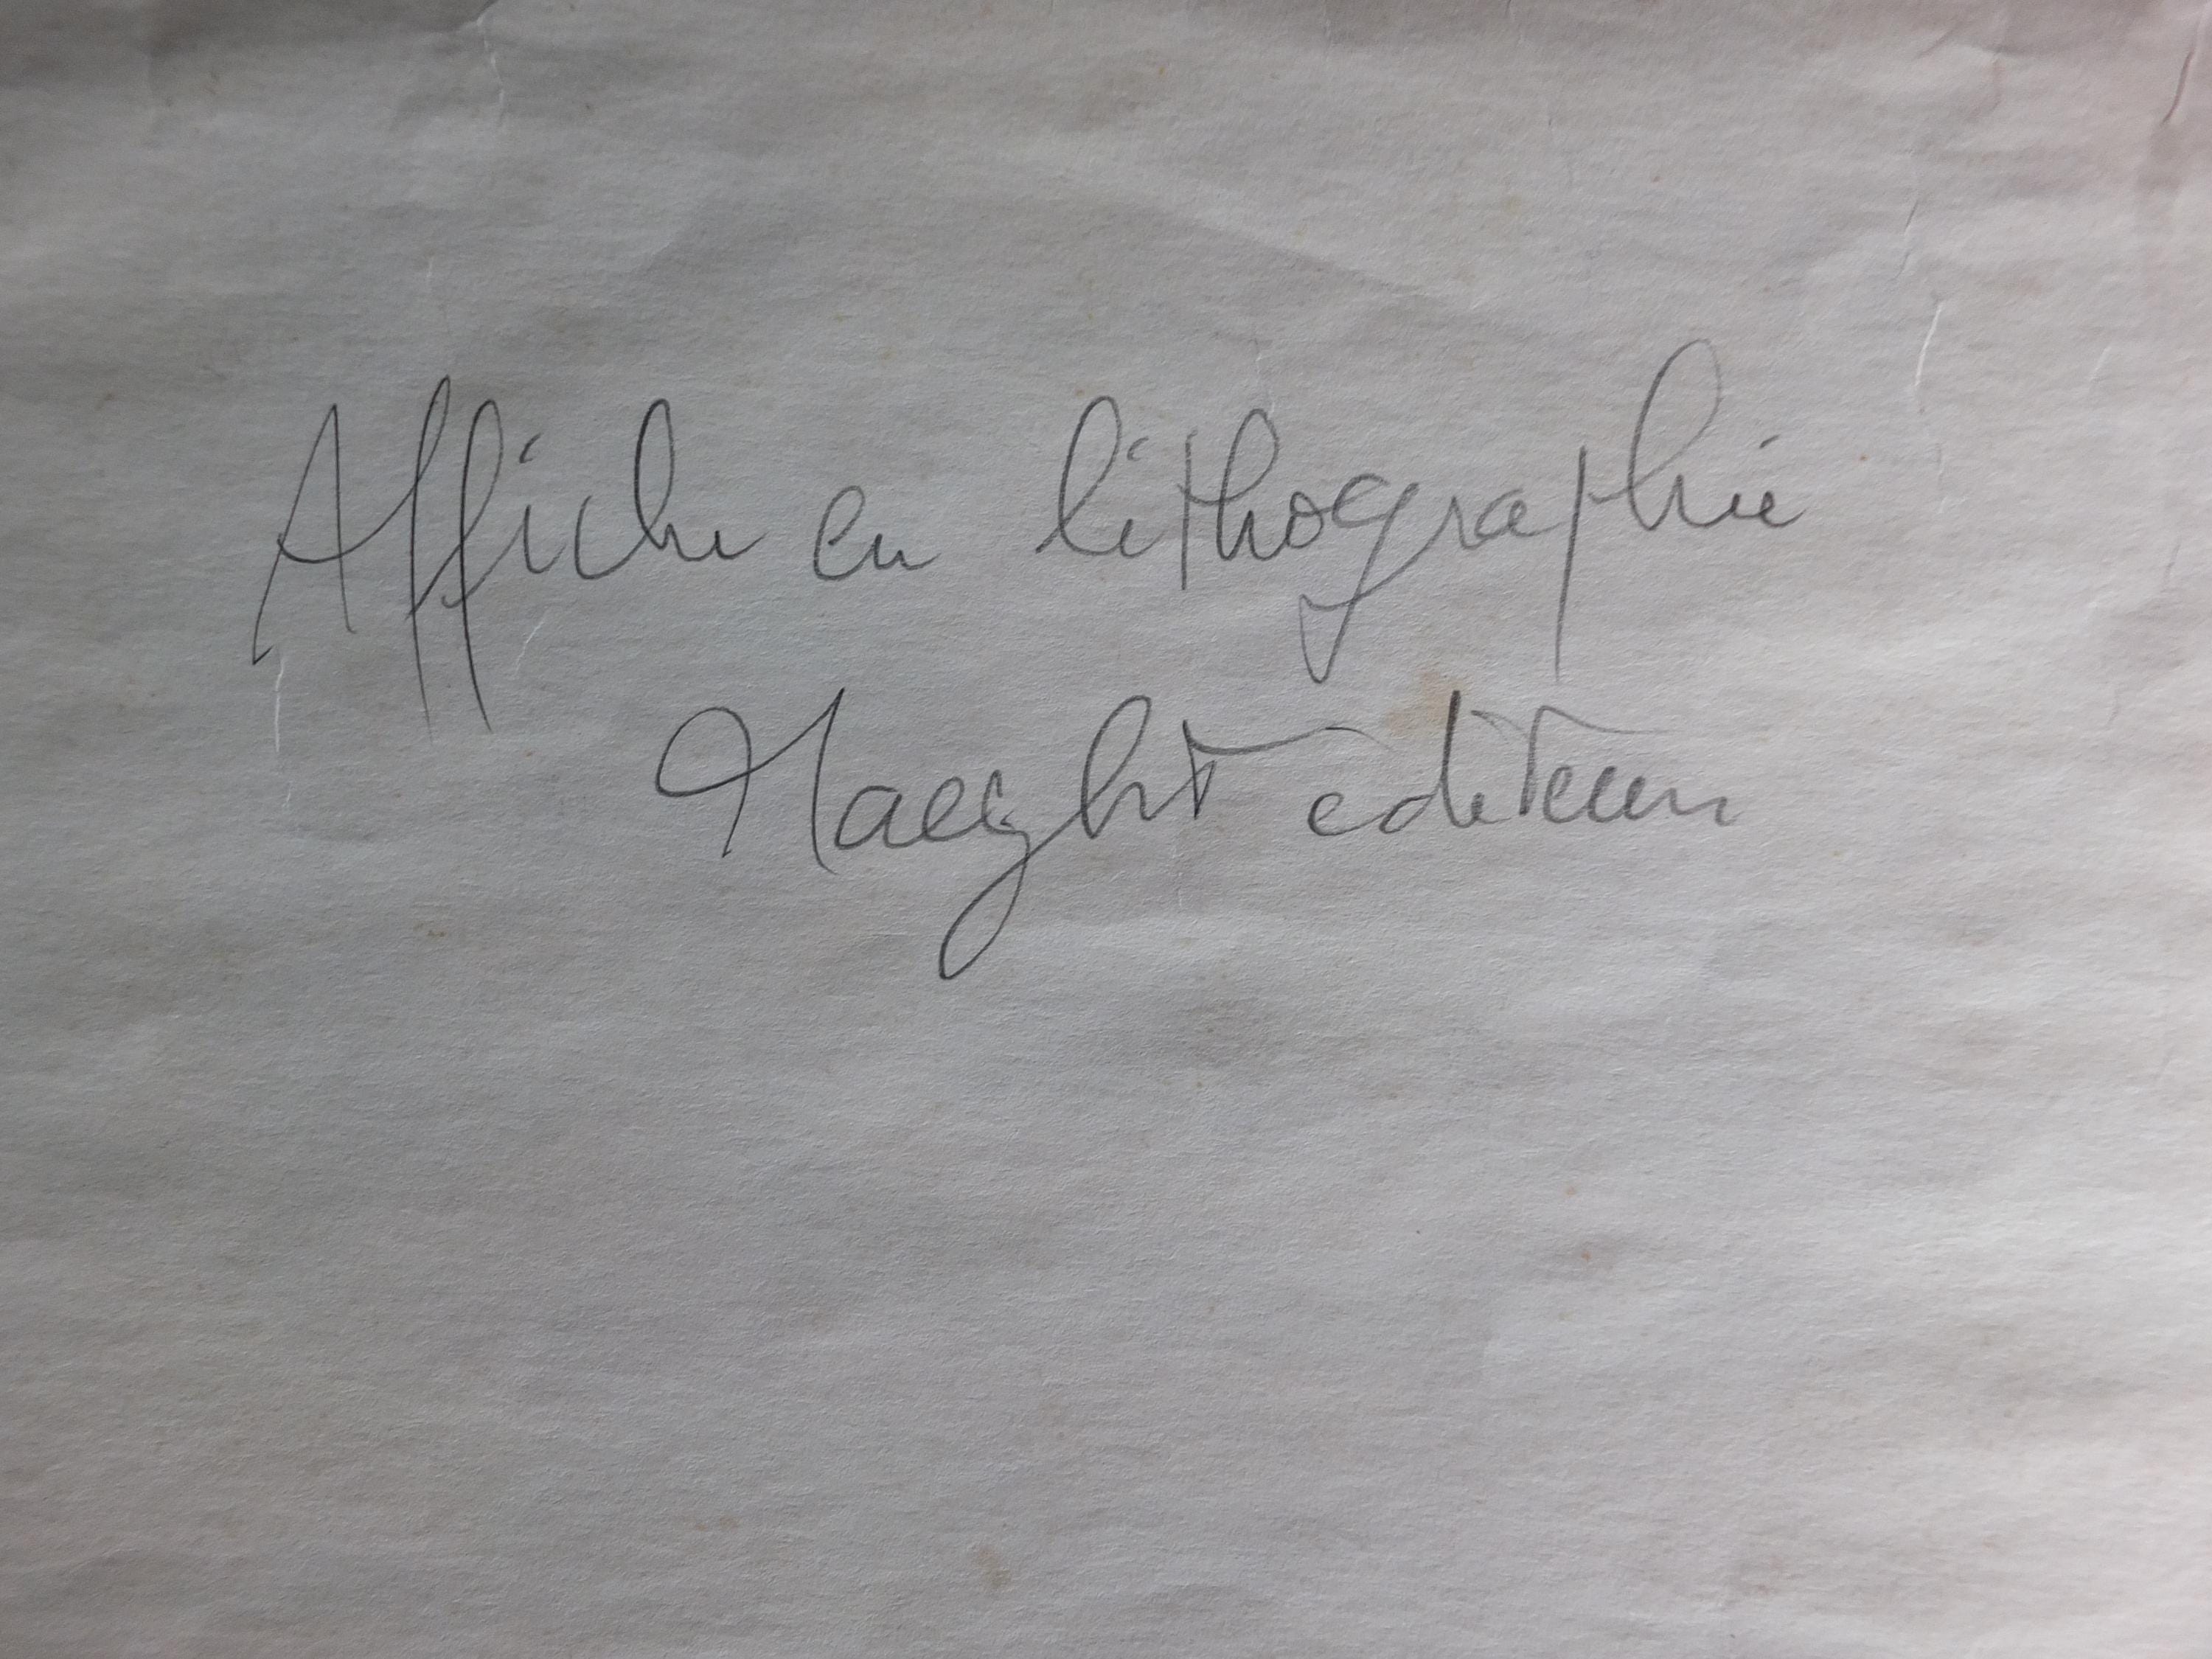 Affiche en lithographie
Maeght editeur